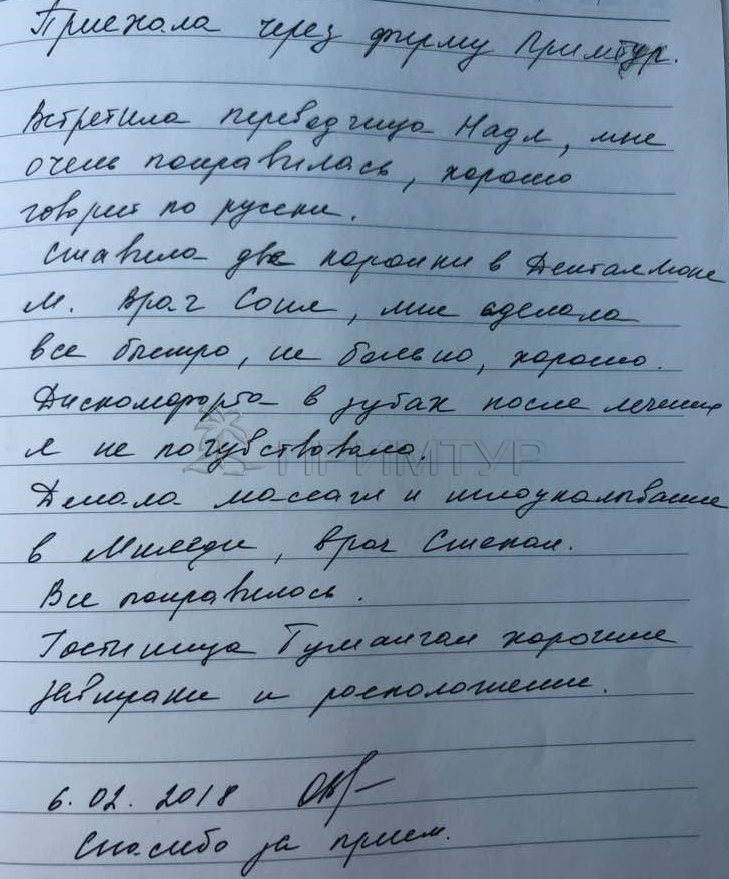 Приехала через фирму Примтур.
Встретила переводчица Надя, мне
очень понравилась, хорошо
говорит по русски.
Ставила две коронки в Денталюкс
М. Врач Соня, мне сделала
все быстро, не больно, хорошо.
Дискомфорта в зубах после лечения
я не почувствовала.
ПРИМТУР
Делала массаж и иглоукалывание
в Миледи, врач Степан.
Все понравилось.
Гостиница Тумангам хорошие
завтраки и расположение.
6.02.2018
Спасибо за прием.